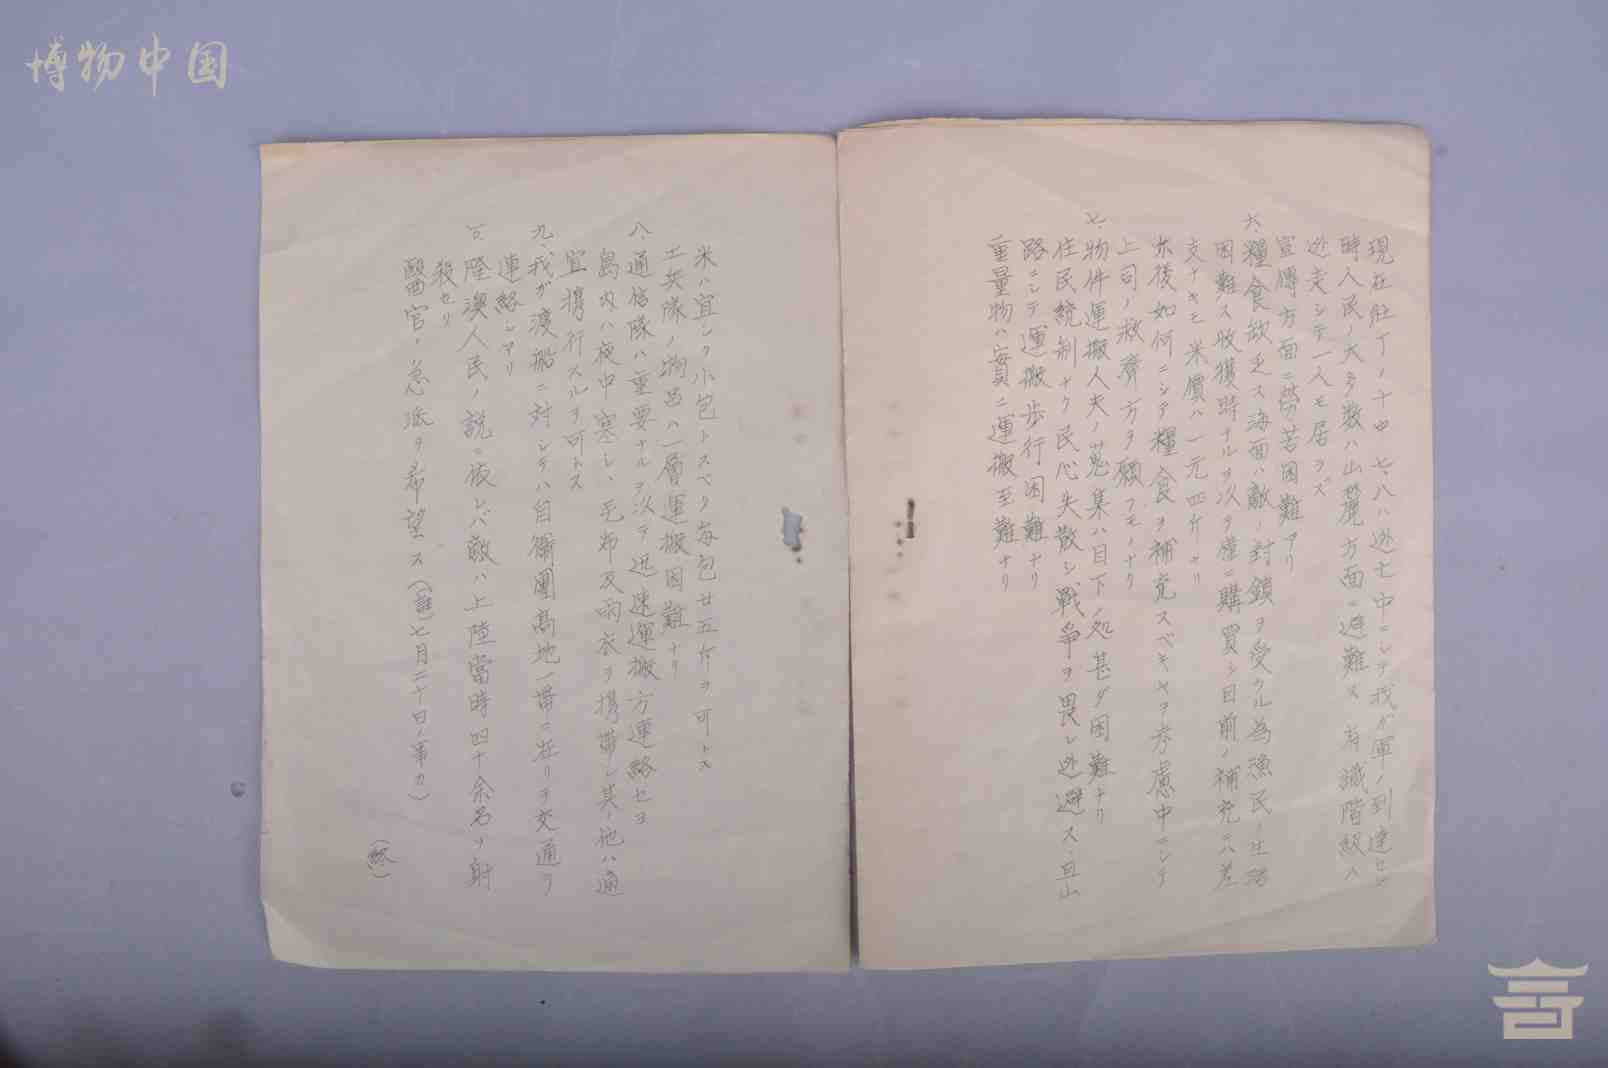 博物中国
現在壯丁ノ十中七、八ハ逃亡中ニシテ我ガ軍ノ到達セル
時人民ノ大多数ハ山麓方面ニ避難ス 有識階級ハ
逃走シテ一人モ居ラズ
宣傳方面ニ勞苦困難アリ
六、糧食欽乏ス海面ハ敵ノ封鎖ヲ受クル為漁民ノ生活
困難ス收獲時ナルヲ以テ僅ニ購買シ目前ノ補充ニハ差
支ナキモ米價ハ一元四斤ナリ
尓後如何ニシテ糧食ヲ補充スベキヤヲ考慮中ニシテ
上司ノ救濟方ヲ願フモノナリ
七、物件運搬人夫ノ蒐集ハ目下ノ処甚ダ困難ナリ
住民統制ナク民心失散シ戰爭ヲ畏レ逃避ス、且山
路ニシテ運搬歩行困難ナリ
重量物ハ實ニ運搬至難ナリ
米ハ宜シク小包トスベク每包廿五斤ヲ可トス
工兵隊ノ物品ハ一層運搬困難ナリ
八、通信隊ハ重要ナルヲ以テ迅速運搬方連絡セヨ
島内ハ夜中寒シ、毛布及雨衣ヲ携帶シ其ノ他ハ適
宜携行スルヲ可トス
九、我ガ渡船ニ対シテハ自衞團高地一帯ニ在リテ交通ヲ
連絡シアリ
隆澳人民ノ説ニ依レバ敵ハ上陸當時四十余名ヲ射
殺セリ
醫官ノ急派ヲ希望ス(註)七月二十日ノ事カ)
(終)